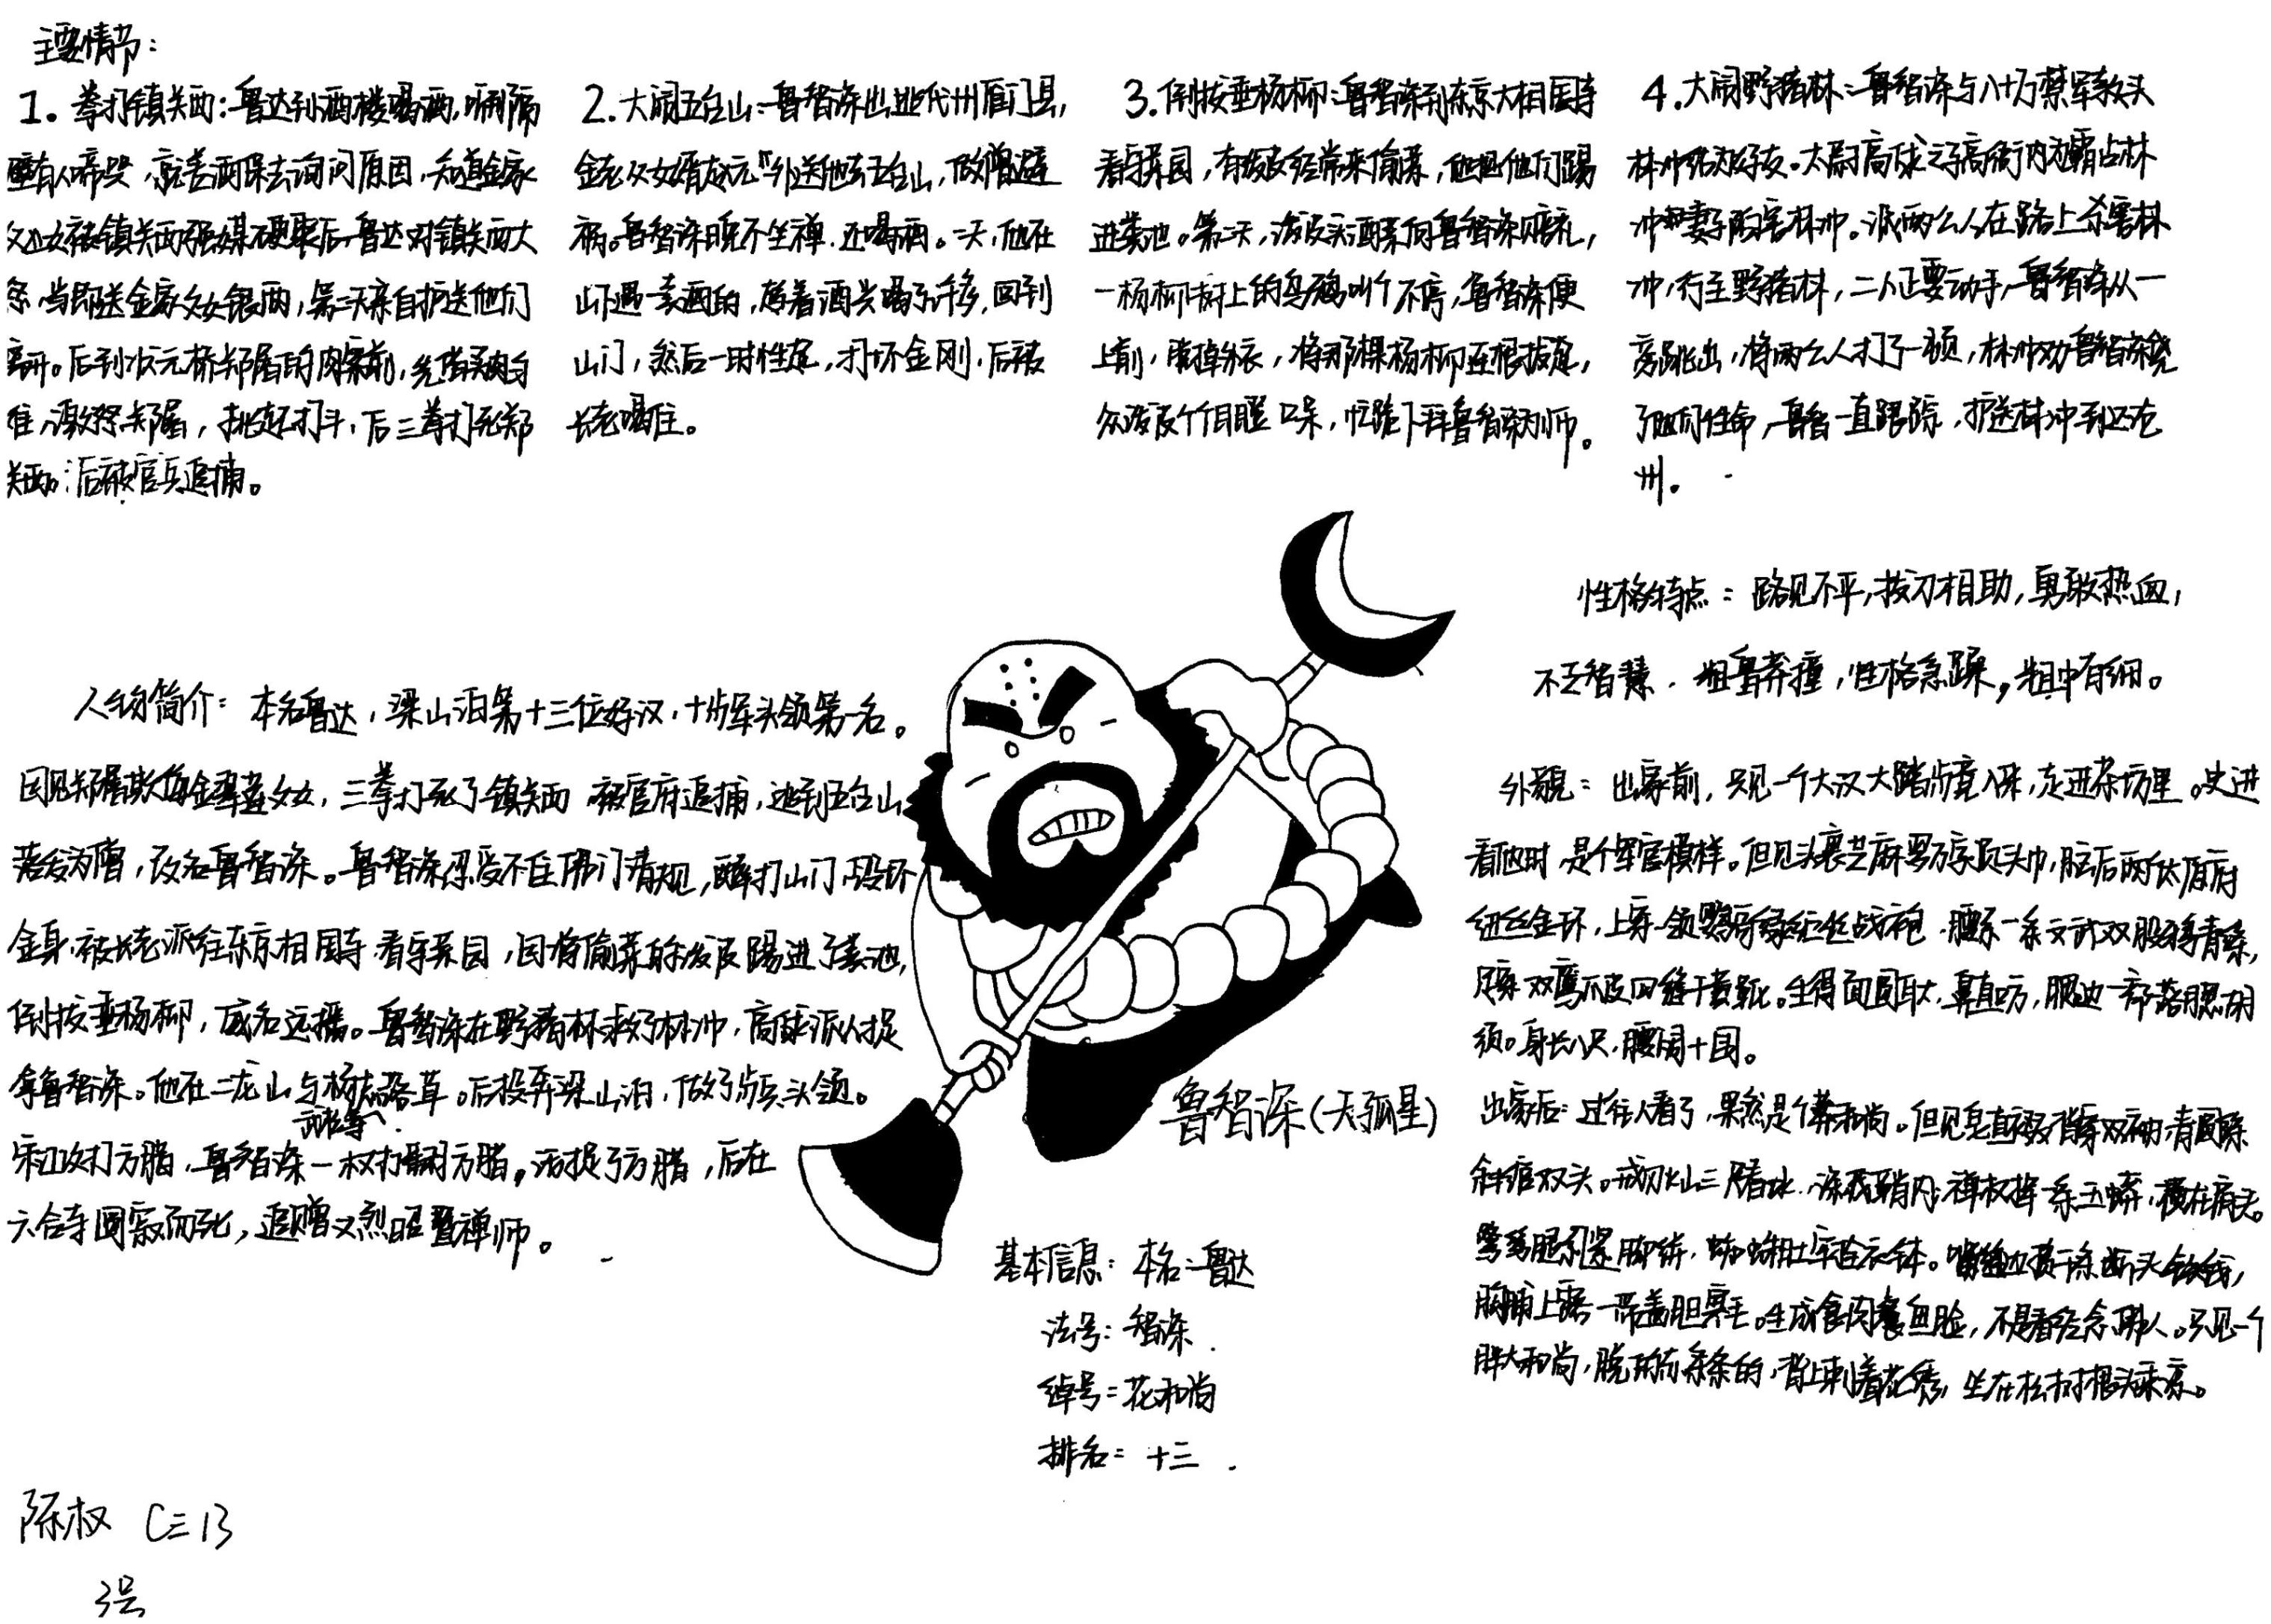 主要情节：
1. 拳打镇关西：鲁达到酒楼喝酒，听隔
壁有人啼哭，就差酒保去询问原因，知道金家
父女被镇关西强媒硬娶后，鲁达对镇关西大
怒，当即送金家父女银两，第二天亲自护送他们
离开。后到状元桥郑屠的肉案前，先借买肉
激怒郑屠，挑起打斗，后三拳打死郑
关西。后被官兵追捕。
2. 大闹五台山：鲁智深出逃代州雁门县，
金老父女婿赵元外送他到五台山，做僧避
祸。鲁智深晚不坐禅，还喝酒。一天，他在
山下遇一卖酒的，趁着酒兴喝了许多，回到
山门，然后一时性起，打坏金刚，后被
长老喝住。
3. 倒拔垂杨柳：鲁智深到东京大相国寺
看守菜园，有泼皮经常来偷菜，他把他们踢
进粪池。第二天，泼皮买酒菜向鲁智深赔礼，
一杨柳树上的乌鸦叫个不停，鲁智深便
上前，脱掉外衣，将那棵杨柳连根拔起，
众泼皮个个目瞪口呆，忙跪下拜鲁智深为师。
4. 大闹野猪林：鲁智深与八十万禁军教头
林冲结为好友。太尉高俅之子高衙内为霸占林
冲妻子陷害林冲。派两公人在路上杀害林
冲，行至野猪林，二人正要动手，鲁智深从一
旁跳出，将两公人打了一顿，林冲劝鲁智深饶
了他们性命，鲁智一直跟踪，护送林冲到沧
州。
性格特点：路见不平，拔刀相助，勇敢热血，
不乏智慧．粗鲁莽撞，性格急躁，粗中有细。
人物简介：本名鲁达，梁山泊第十三位好汉，十步军头领第一名。
因见郑屠欺侮金翠莲父女，三拳打死了镇关西，被官府追捕，逃到五台山
落发为僧，改名鲁智深。鲁智深忍受不住佛门清规，醉打山门，毁坏
金身，被长老派往东京相国寺，看守菜园，因将偷菜的泼皮踢进了粪池，
倒拔垂杨柳，威名远播。鲁智深在野猪林救了林冲，高俅派人捉
拿鲁智深。他在二龙山与杨志
武松等人
落草。后投奔梁山泊，做了步兵头领。
宋江攻打方腊，鲁智深一杖打翻方腊，活捉了方腊，后在
六合寺圆寂而死，追赠义烈昭暨禅师。
外貌：出家前，只见一个大汉大踏步竟入来，走进茶坊里。史进
看他时，是个军官模样。但见头裹芝麻罗万字顶头巾，脑后两个太原府
纽丝金环，上穿一领鹦哥绿纻丝战袍，腰系一条文武双股鸦青绦，
足穿双鹰爪皮四缝干黄靴。生得面圆耳大，鼻直口方，腮边一部落腮胡
须。身长八尺，腰阔十围。
出家后：过往人看了，果然是个莽和尚。但见皂直裰背穿双袖，青圆绦
斜绾双头。戒刀灿三尺春冰，深藏鞘内；禅杖挥一条玉蟒，横在肩头。
鹭鸶腿紧系脚絣，蜘蛛肚牢拴衣钵。嘴缝边攒千条断头铁线，
胸脯上露一带盖胆寒毛。生成食肉餐鱼脸，不是看经念佛人。只见一个
胖大和尚，脱的赤条条的，背上刺着花绣，坐在松树根头乘凉。
鲁智深（天孤星）
基本信息：本名：鲁达
法号：智深．
绰号：花和尚
排名：十三．
陈权 C三13
3号